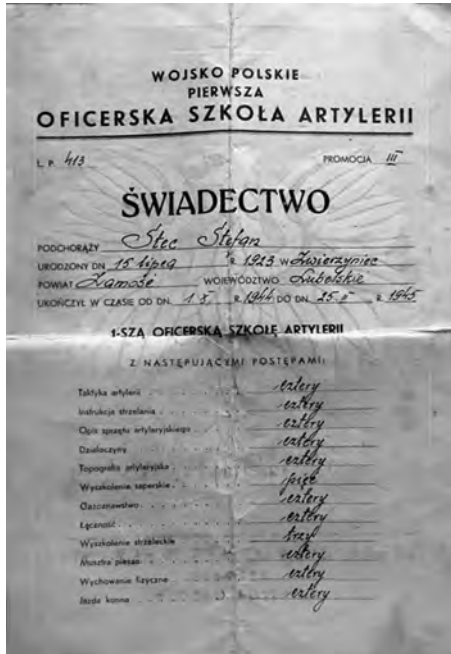 WOJSKO POLSKIE
PIERWSZA
OFICERSKA SZKOŁA ARTYLERII
L. P. 413 PROMOCJA III
ŚWIADECTWO
PODCHORĄŻY Stec Stefan
URODZONY DN 15 lipca R 1923 W Zwierzyniec
POWIAT Zamość WOJEWÓDZTWO Lubelskie
UKOŃCZYŁ W CZASIE OD DN. 1.X. R 1944 DO DN. 25.II R 1945
1-SZĄ OFICERSKĄ SZKOŁĘ ARTYLERII
Z NASTĘPUJĄCYMI POSTĘPAMI:
Taktyka artylerii cztery
Instrukcja strzelania cztery
Opis sprzętu artyleryjskiego cztery
Działoczyny cztery
Topografia artyleryjska cztery
Wyszkolenie saperskie pięć
Gazoznawstwo cztery
Łączność cztery
Wyszkolenie strzeleckie trzy
Musztra piesza cztery
Wychowanie fizyczne cztery
Jazda konna cztery